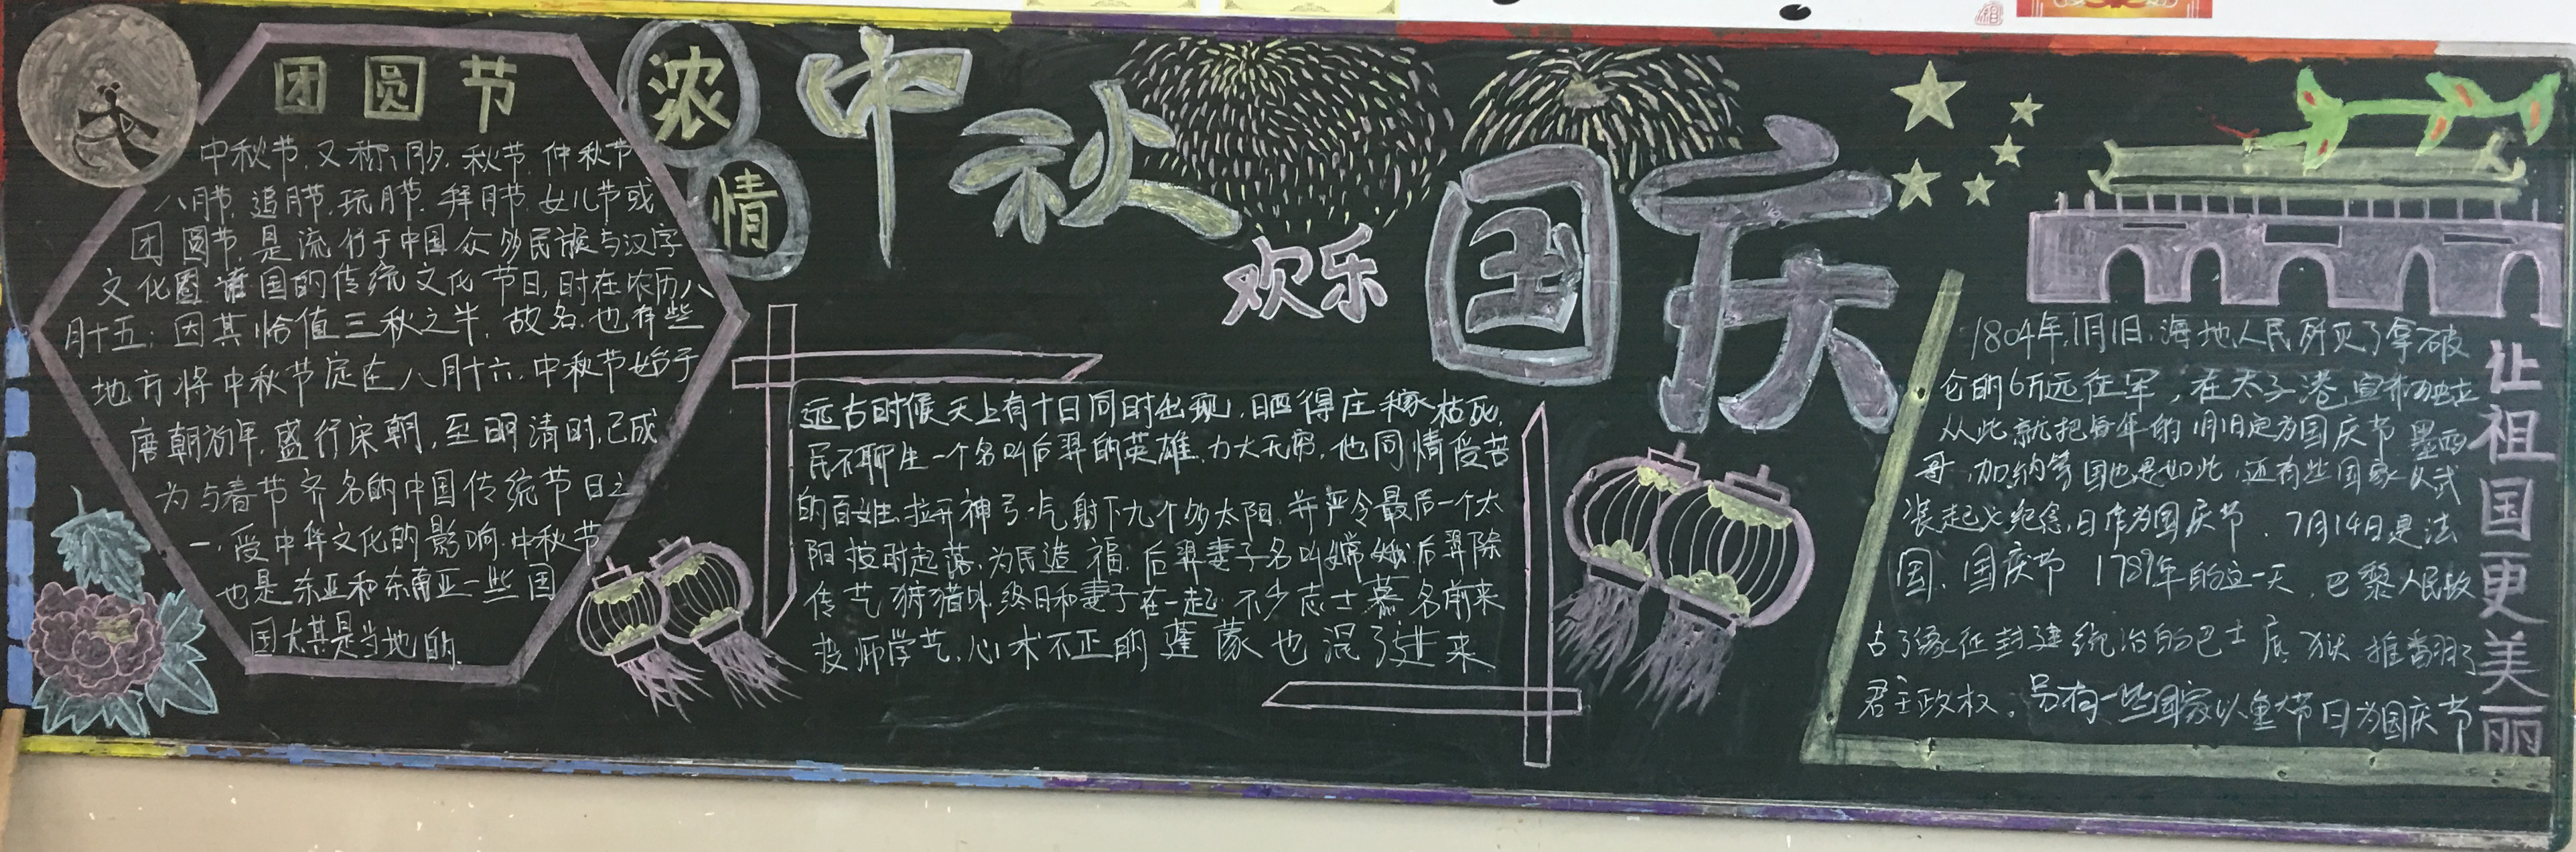 团圆节
中秋节,又称月夕,秋节,仲秋节
八月节,追月节,玩月节,拜月节,女儿节或
团圆节,是流行于中国众多民族与汉字
文化圈诸国的传统文化节日,时在农历八
月十五;因其恰值三秋之半,故名,也有些
地方将中秋节定在八月十六,中秋节始于
唐朝初年,盛行宋朝,至明清时,已成
为与春节齐名的中国传统节日之
一,受中华文化的影响,中秋节
也是东亚和东南亚一些国
国尤其是当地的
浓情
中秋
欢乐
国庆
远古时候天上有十日同时出现,晒得庄稼枯死,
民不聊生一个名叫后羿的英雄,力大无穷,他同情受苦
的百姓,拉开神弓,气射下九个多太阳,并严令最后一个太
阳按时起落,为民造福,后羿妻子名叫嫦娥,后羿除
传艺狩猎外,终日和妻子在一起,不少志士慕名前来
投师学艺,心术不正的蓬蒙也混了进来
1804年,1月1日,海地人民歼灭了拿破
仑的6万远征军,在太子港宣布独立
从此就把每年的1月1日定为国庆节墨西
哥,加纳等国也是如此,还有些国家以武
装起义纪念,日作为国庆节.7月14日是法
国、国庆节 1789年的这一天,巴黎人民攻
占了象征封建统治的巴士底狱推翻了
君主政权。另有一些国家以重大节日为国庆节
让祖国更美丽